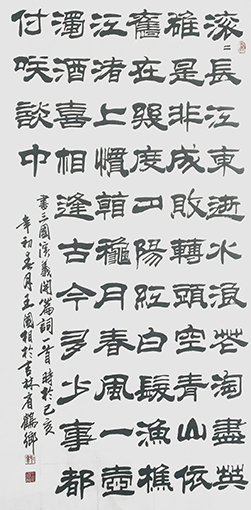 滚二長江東逝水浪花淘盡英
雄是非成敗轉頭空青山依
舊在幾度夕陽紅白髮漁樵
江渚上慣看龝月春風一壺
濁酒喜相逢古今多少事都
付咲談中
書三國演義開篇詞一首時於己亥
年初春月王國相於吉林省鶴鄉